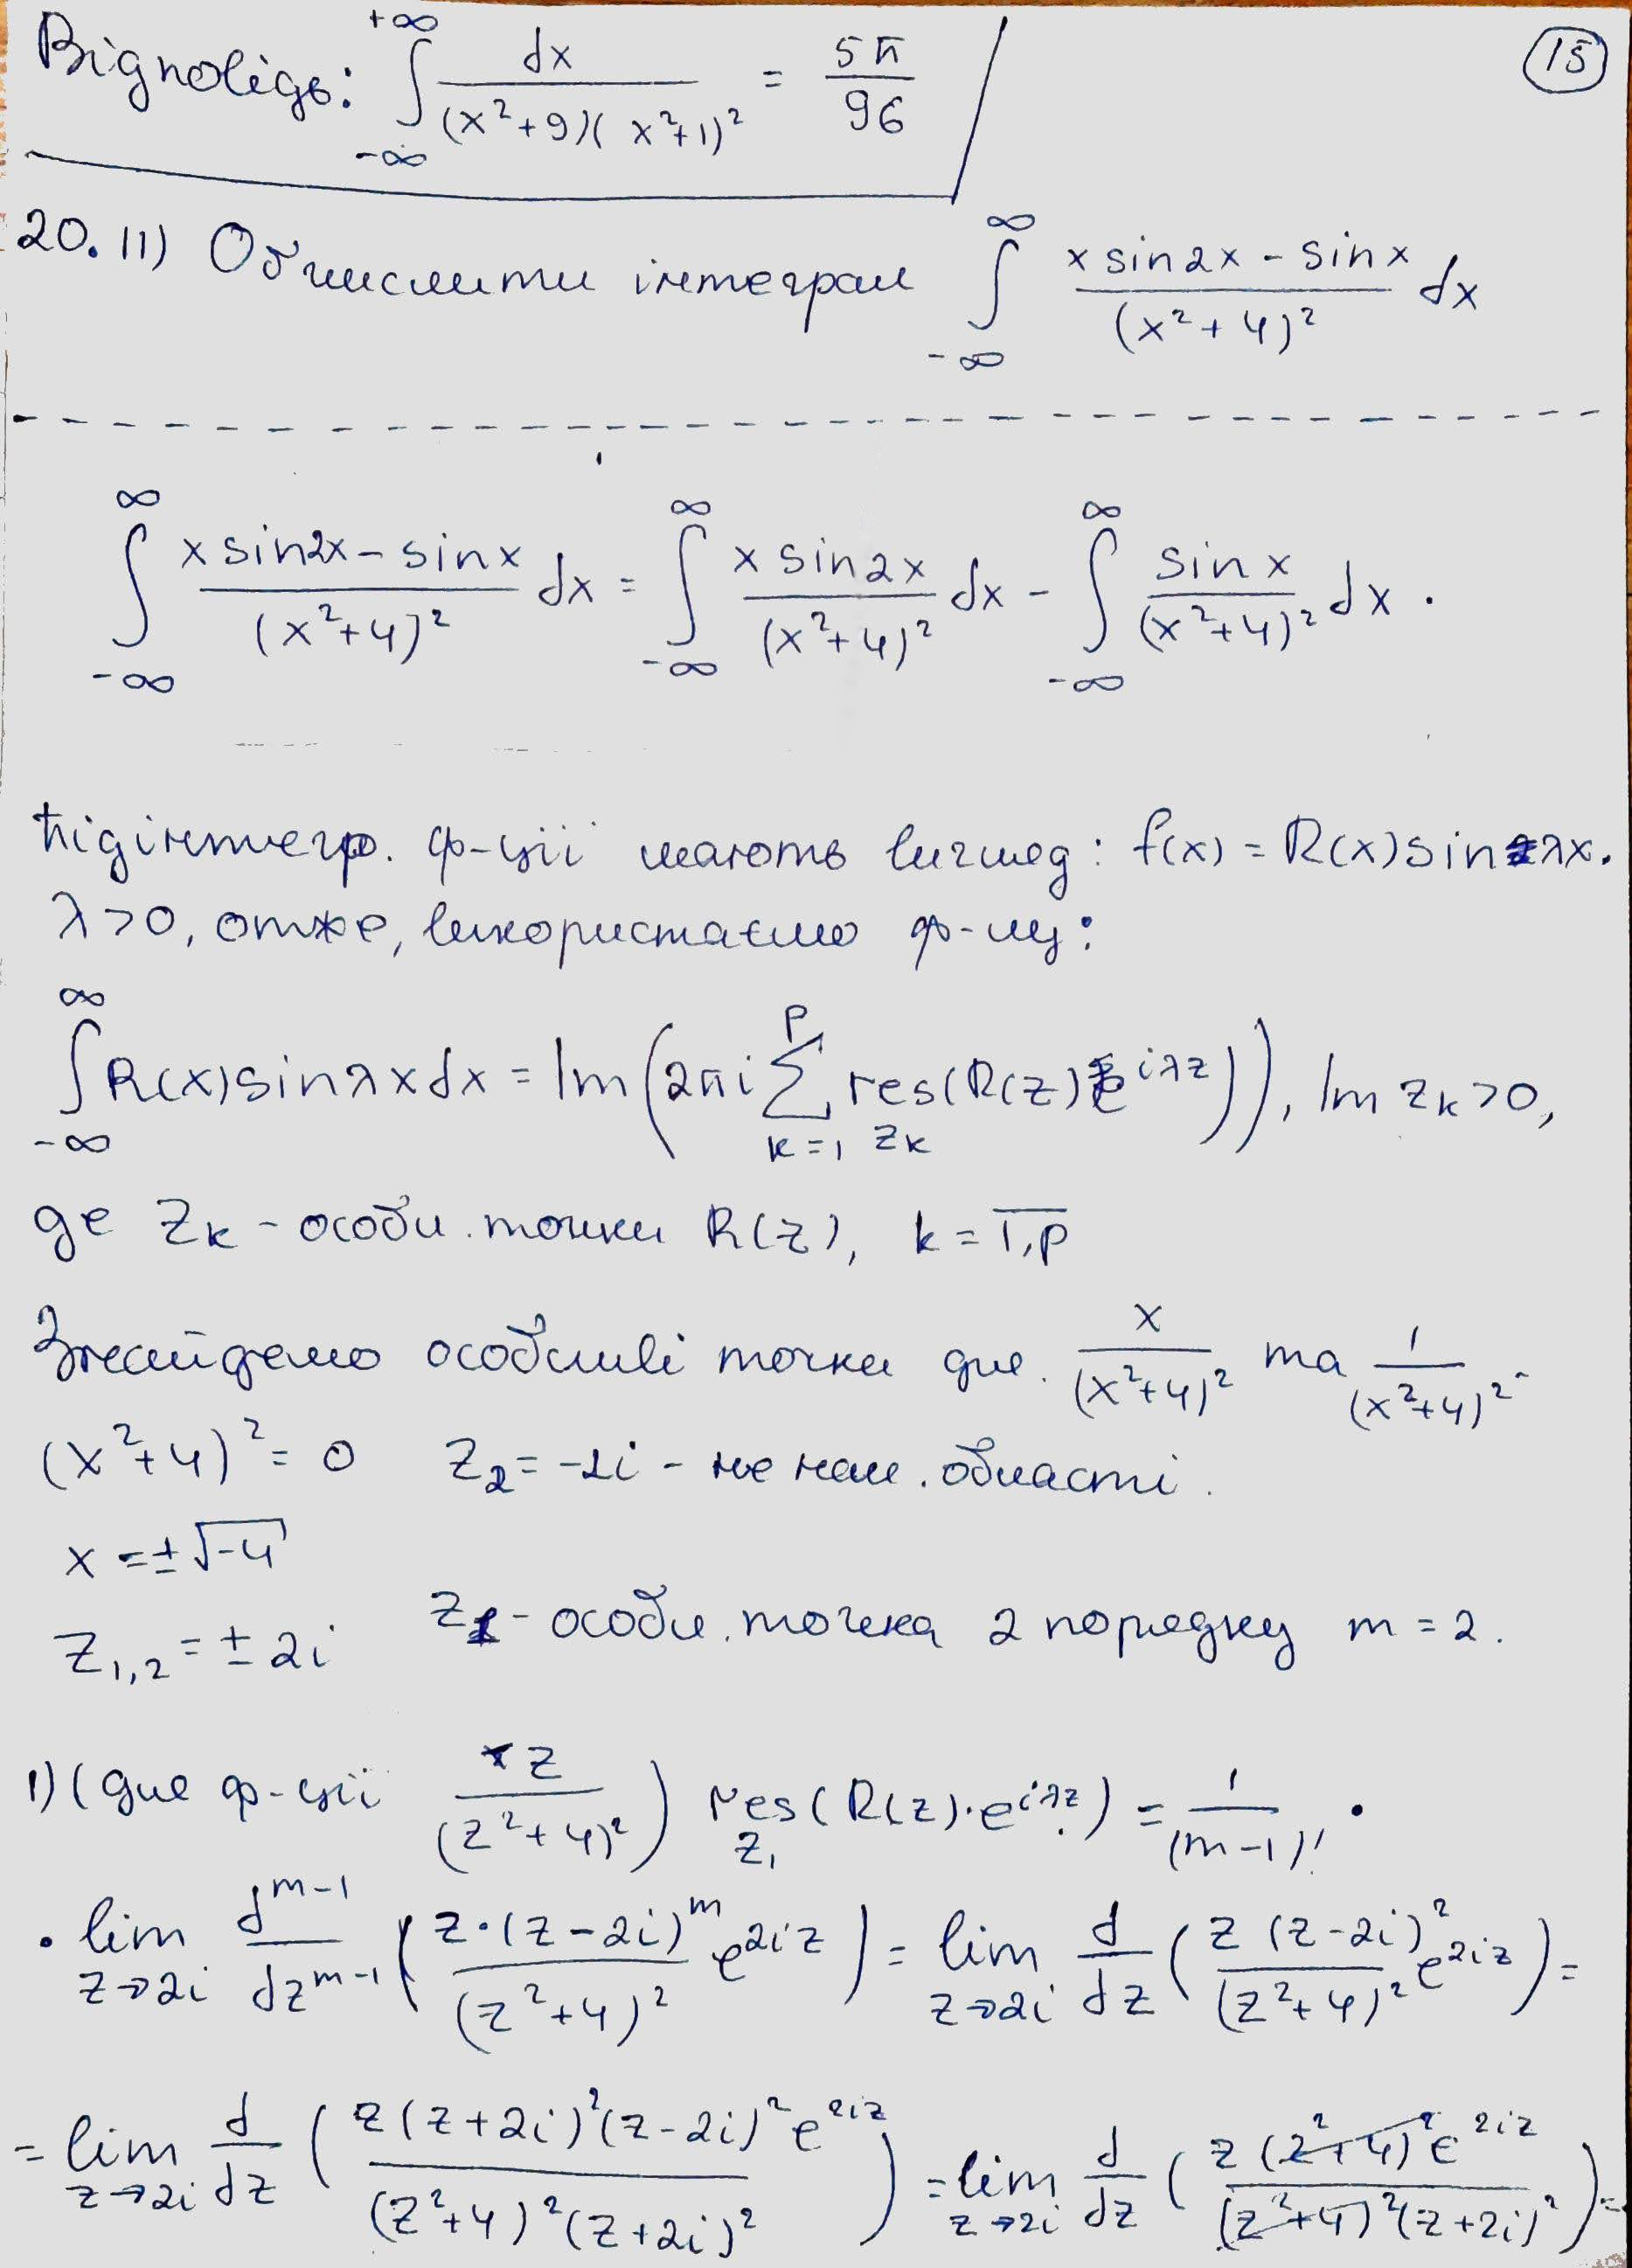 Відповідь: ∫_{-∞}^{+∞} dx / ((x²+9)(x²+1)²) = 5π/96
15
20.11) Обчислити інтеграл ∫_{-∞}^{∞} (x sin2x - sinx)/(x²+4)² dx
∫_{-∞}^{∞} (x sin2x - sinx)/(x²+4)² dx = ∫_{-∞}^{∞} (x sin2x)/(x²+4)² dx - ∫_{-∞}^{∞} sinx/(x²+4)² dx.
Підінтегр. ф-ції мають вигляд: f(x) = R(x) sin λx.
λ>0, отже, використаємо ф-лу:
∫_{-∞}^{∞} R(x) sin λx dx = Im(2πi ∑_{k=1}^{p} res_{z_k}(R(z) e^{iλz})), Im z_k >0,
де z_k - особл. точки R(z), k = \overline{1,p}
Знайдемо особливі точки для x/(x²+4)² та 1/(x²+4)².
(x²+4)² = 0 z₂ = -2i - не нал. області.
x = ±√-4
z_{1,2} = ± 2i z₁ - особл. точка 2 порядку m = 2.
1) (для ф-ції z/(z²+4)²) res_{z₁}(R(z)·e^{iλz}) = 1/(m-1)! ·
· lim_{z→2i} d^{m-1}/dz^{m-1} (z·(z-2i)^m/(z²+4)² e^{2iz}) = lim_{z→2i} d/dz (z(z-2i)²/(z²+4)² e^{2iz}) =
= lim_{z→2i} d/dz (z(z+2i)²(z-2i)² e^{2iz} / ((z²+4)²(z+2i)²)) = lim_{z→2i} d/dz (z(z²+4)² e^{2iz} / ((z²+4)²(z+2i)²)) =